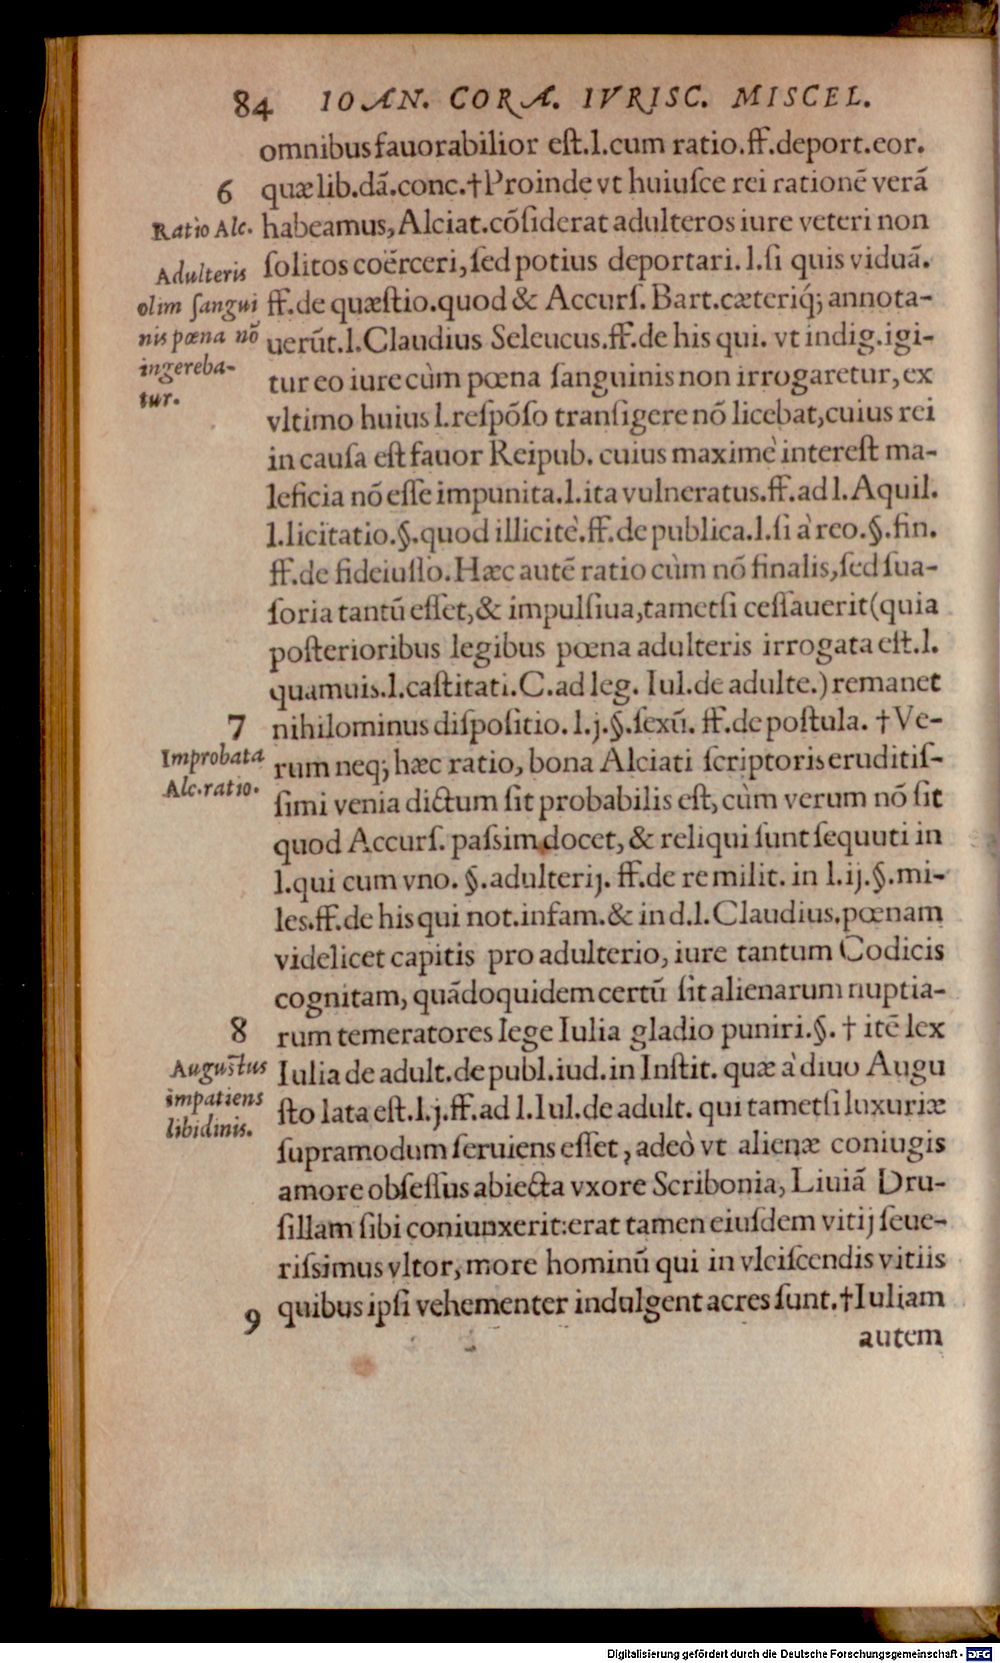 84 IOAN. CORA. IVRISC. MISCEL.
omnibus fauorabilior eſt.l.cum ratio.ff.deport.eor.
6
quæ lib.dã.conc.†Proinde vt huiuſce rei rationẽ verã
Ratio Alc.
habeamus, Alciat.cõſiderat adulteros iure veteri non
Adulteris
olim ſangui
nis pœna nõ
ingereba-
tur.
ſolitos coërceri, ſed potius deportari.l.ſi quis viduã.
ff.de quæſtio.quod & Accurſ. Bart.cæteriq́; annota-
uerũt.l.Claudius Seleucus.ff.de his qui. vt indig.igi-
tur eo iure cùm pœna ſanguinis non irrogaretur, ex
vltimo huius l.reſpõſo tranſigere nõ licebat, cuius rei
in cauſa eſt fauor Reipub. cuius maximè intereſt ma-
leficia nõ eſſe impunita.l.ita vulneratus.ff.ad l.Aquil.
l.licitatio.§.quod illicitè.ff.de publica.l.ſi à reo.§.fin.
ff.de fideiuſſo.Hæc autẽ ratio cùm nõ finalis, ſed ſua-
ſoria tantũ eſſet, & impulſiua, tametſi ceſſauerit (quia
poſterioribus legibus pœna adulteris irrogata eſt.l.
quamuis.l.caſtitati.C.ad leg. Iul.de adulte.) remanet
7
nihilominus diſpoſitio.l.j.§.ſexũ. ff.de poſtula. †Ve-
Improbata
Alc.ratio.
rum neq; hæc ratio, bona Alciati ſcriptoris eruditiſ-
ſimi venia dictum ſit probabilis eſt, cùm verum nõ ſit
quod Accurſ. paſsim docet, & reliqui ſunt ſequuti in
l.qui cum vno. §.adulterij. ff.de re milit. in l.ij.§.mi-
les.ff.de his qui not.infam.& in d.l.Claudius, pœnam
videlicet capitis pro adulterio, iure tantum Codicis
cognitam, quãdoquidem certũ ſit alienarum nuptia-
8
rum temeratores lege Iulia gladio puniri.§. † itẽ lex
Auguſtus
impatiens
libidinis.
Iulia de adult.de publ.iud.in Inſtit. quæ à diuo Augu
ſto lata eſt.l.j.ff.ad l.Iul.de adult. qui tametſi luxuriæ
ſupramodum ſeruiens eſſet, adeò vt alienæ coniugis
amore obſeſſus abiecta vxore Scribonia, Liuiã Dru-
ſillam ſibi coniunxerit: erat tamen eiuſdem vitij ſeue-
riſsimus vltor, more hominũ qui in vlciſcendis vitiis
9
quibus ipſi vehementer indulgent acres ſunt.†Iuliam
autem
Digitalisierung gefördert durch die Deutsche Forschungsgemeinschaft - DFG